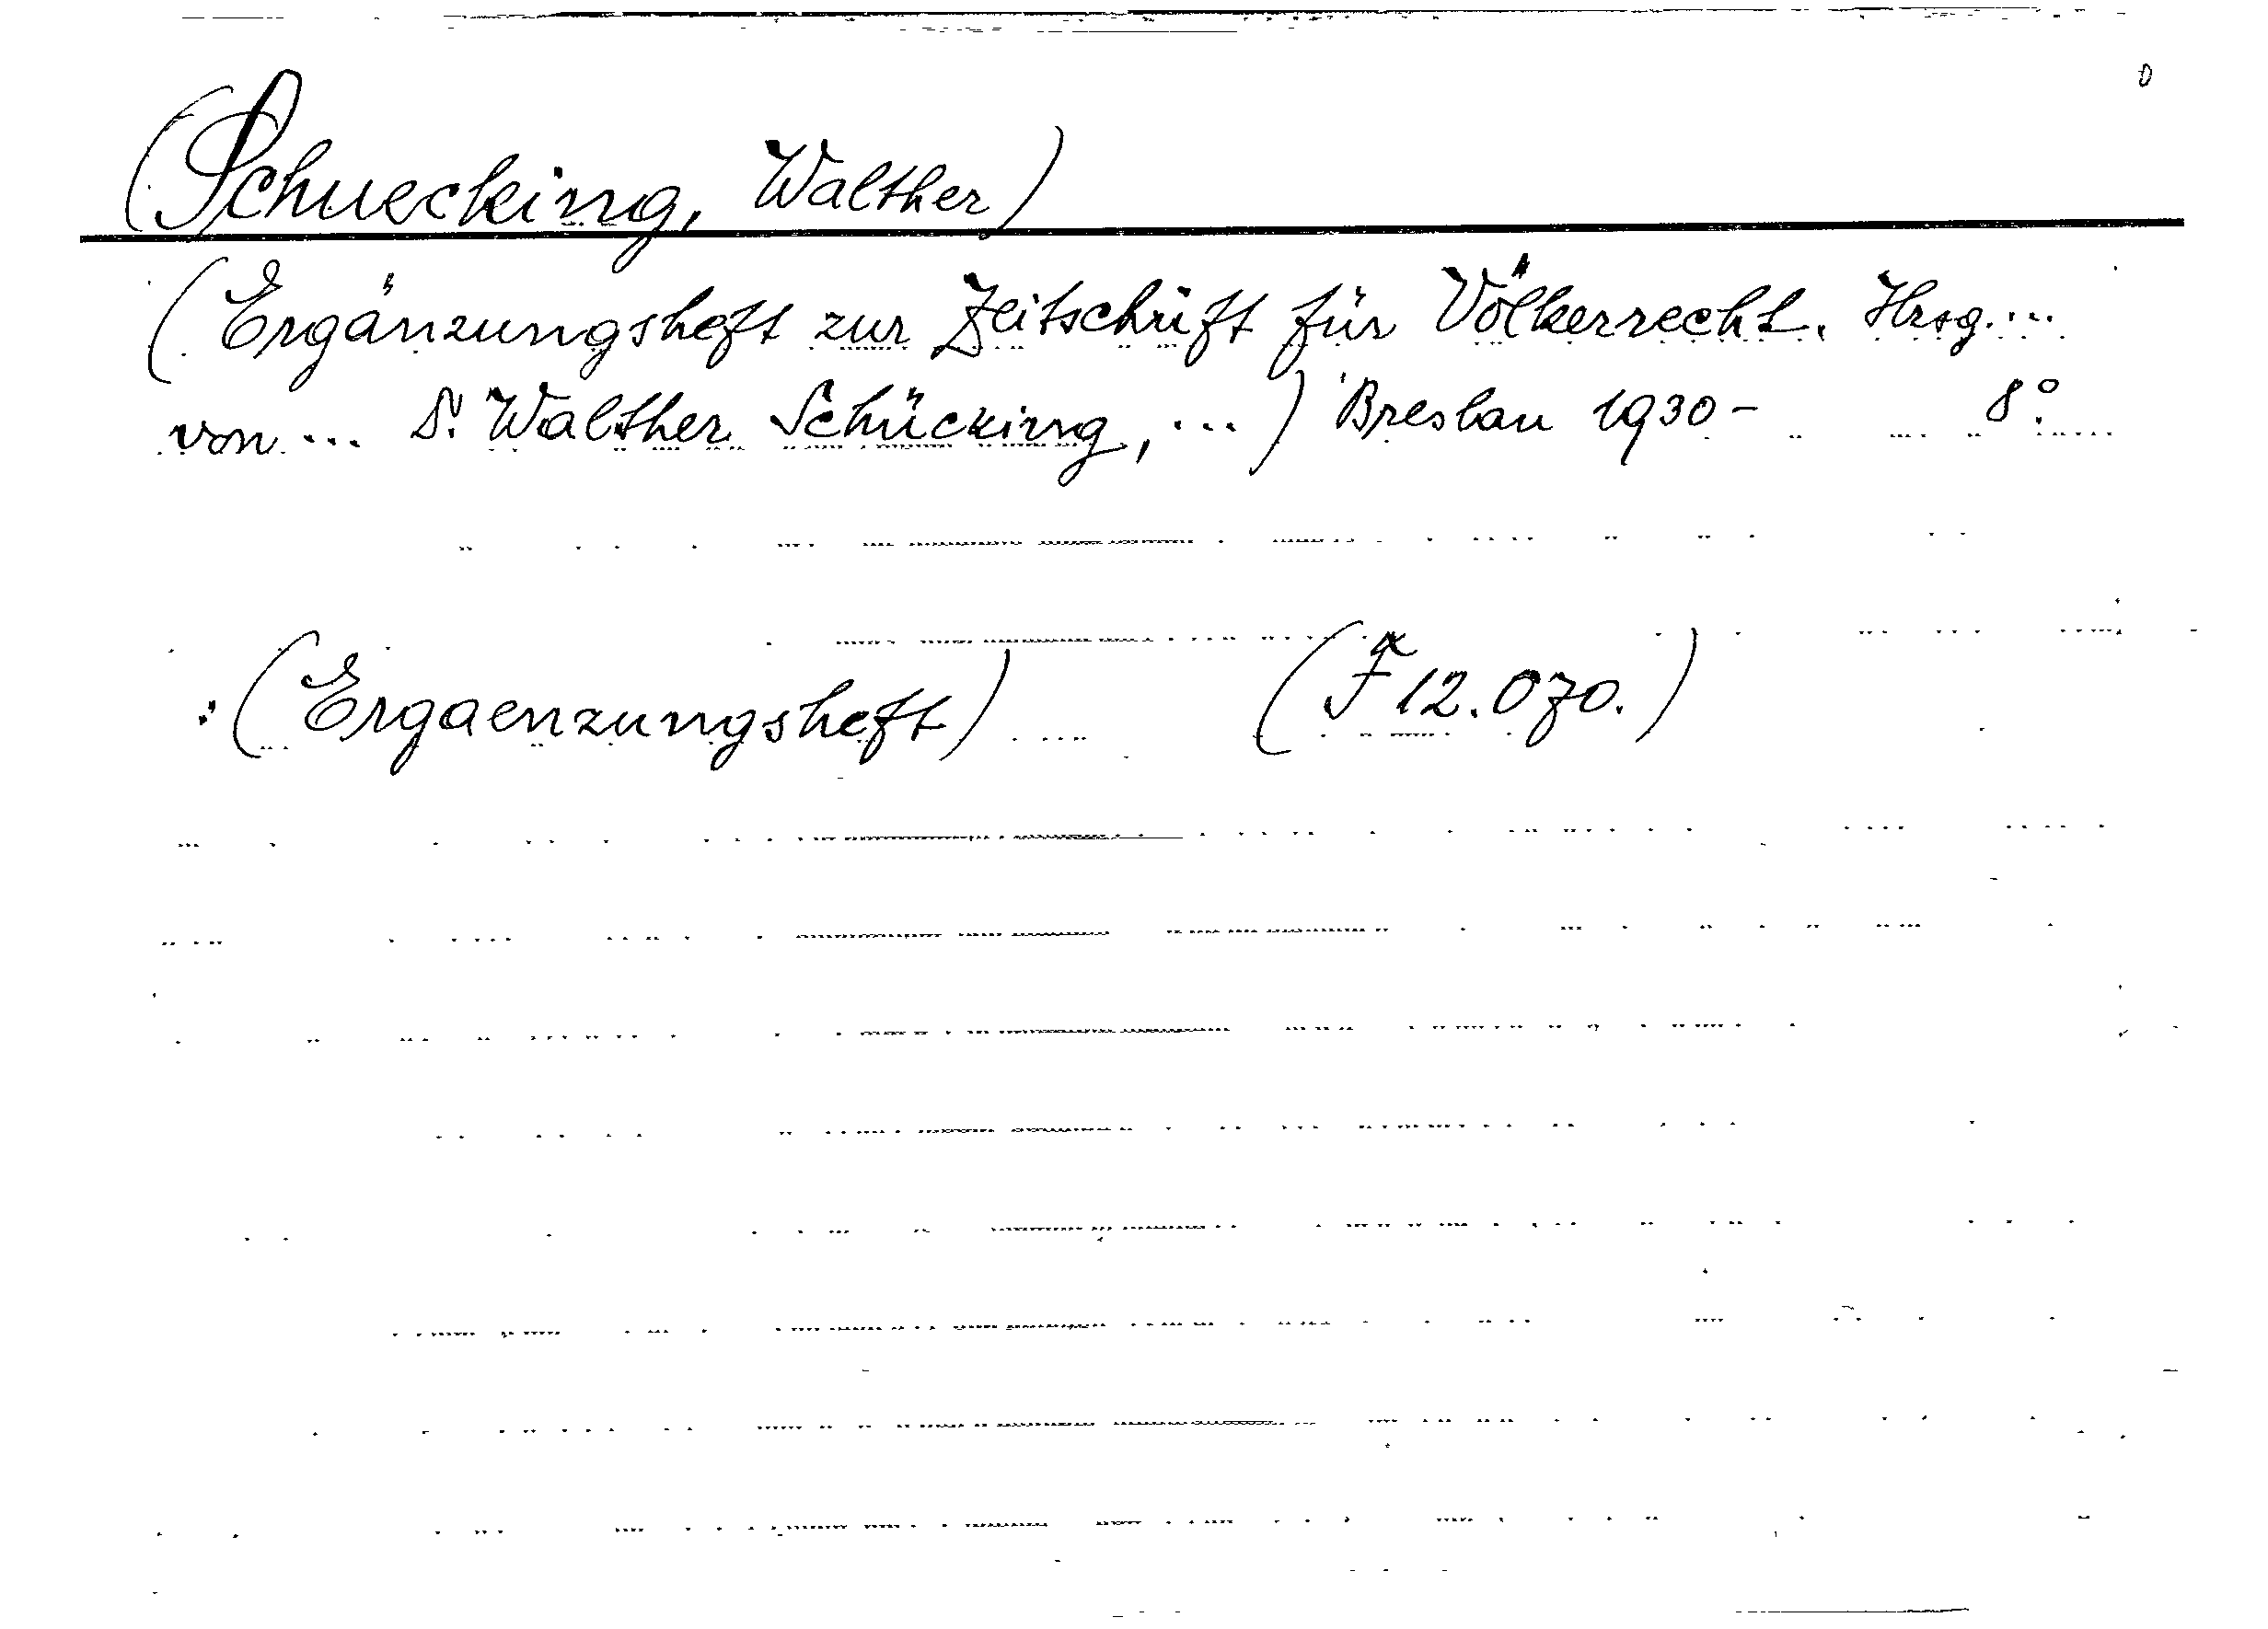 (Schuecking, Walther)
(Ergänzungsheft zur Zeitschrift für Völkerrecht. Hrsg. ...
von ... D. Walther Schücking, ...) Breslau 1930- 8°.
: (Ergaenzungsheft) (F 12.070.)